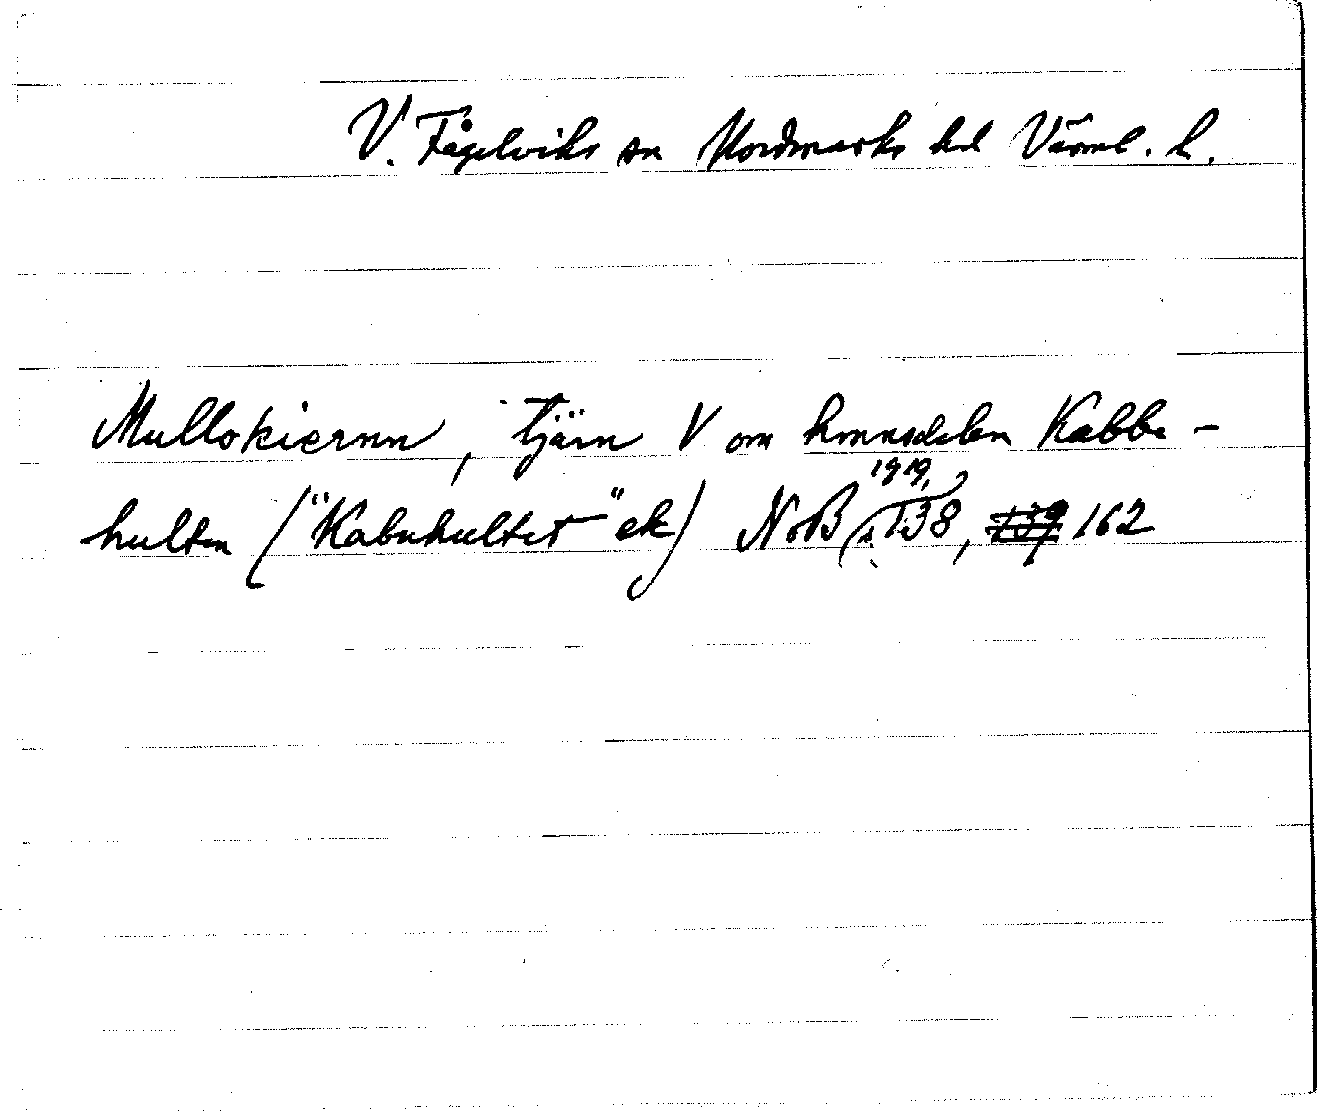 V. Fågelviks sn Nordmarks hd Värml. l.
Mullokiernn, tjärn V om hmnsdelen Kabbe-
hulten ("Kabnhultet" ek) NoB 1919, s. 138, 162